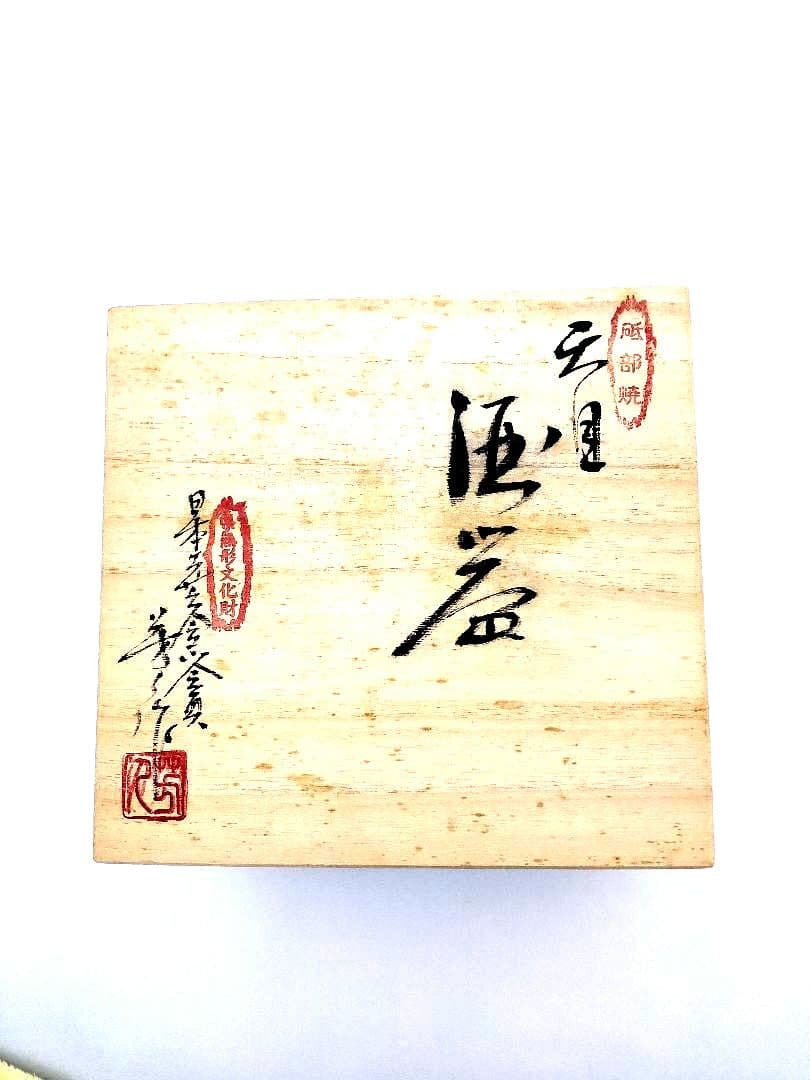 砥部焼
天目
酒器
無形文化財
日本工芸会会員